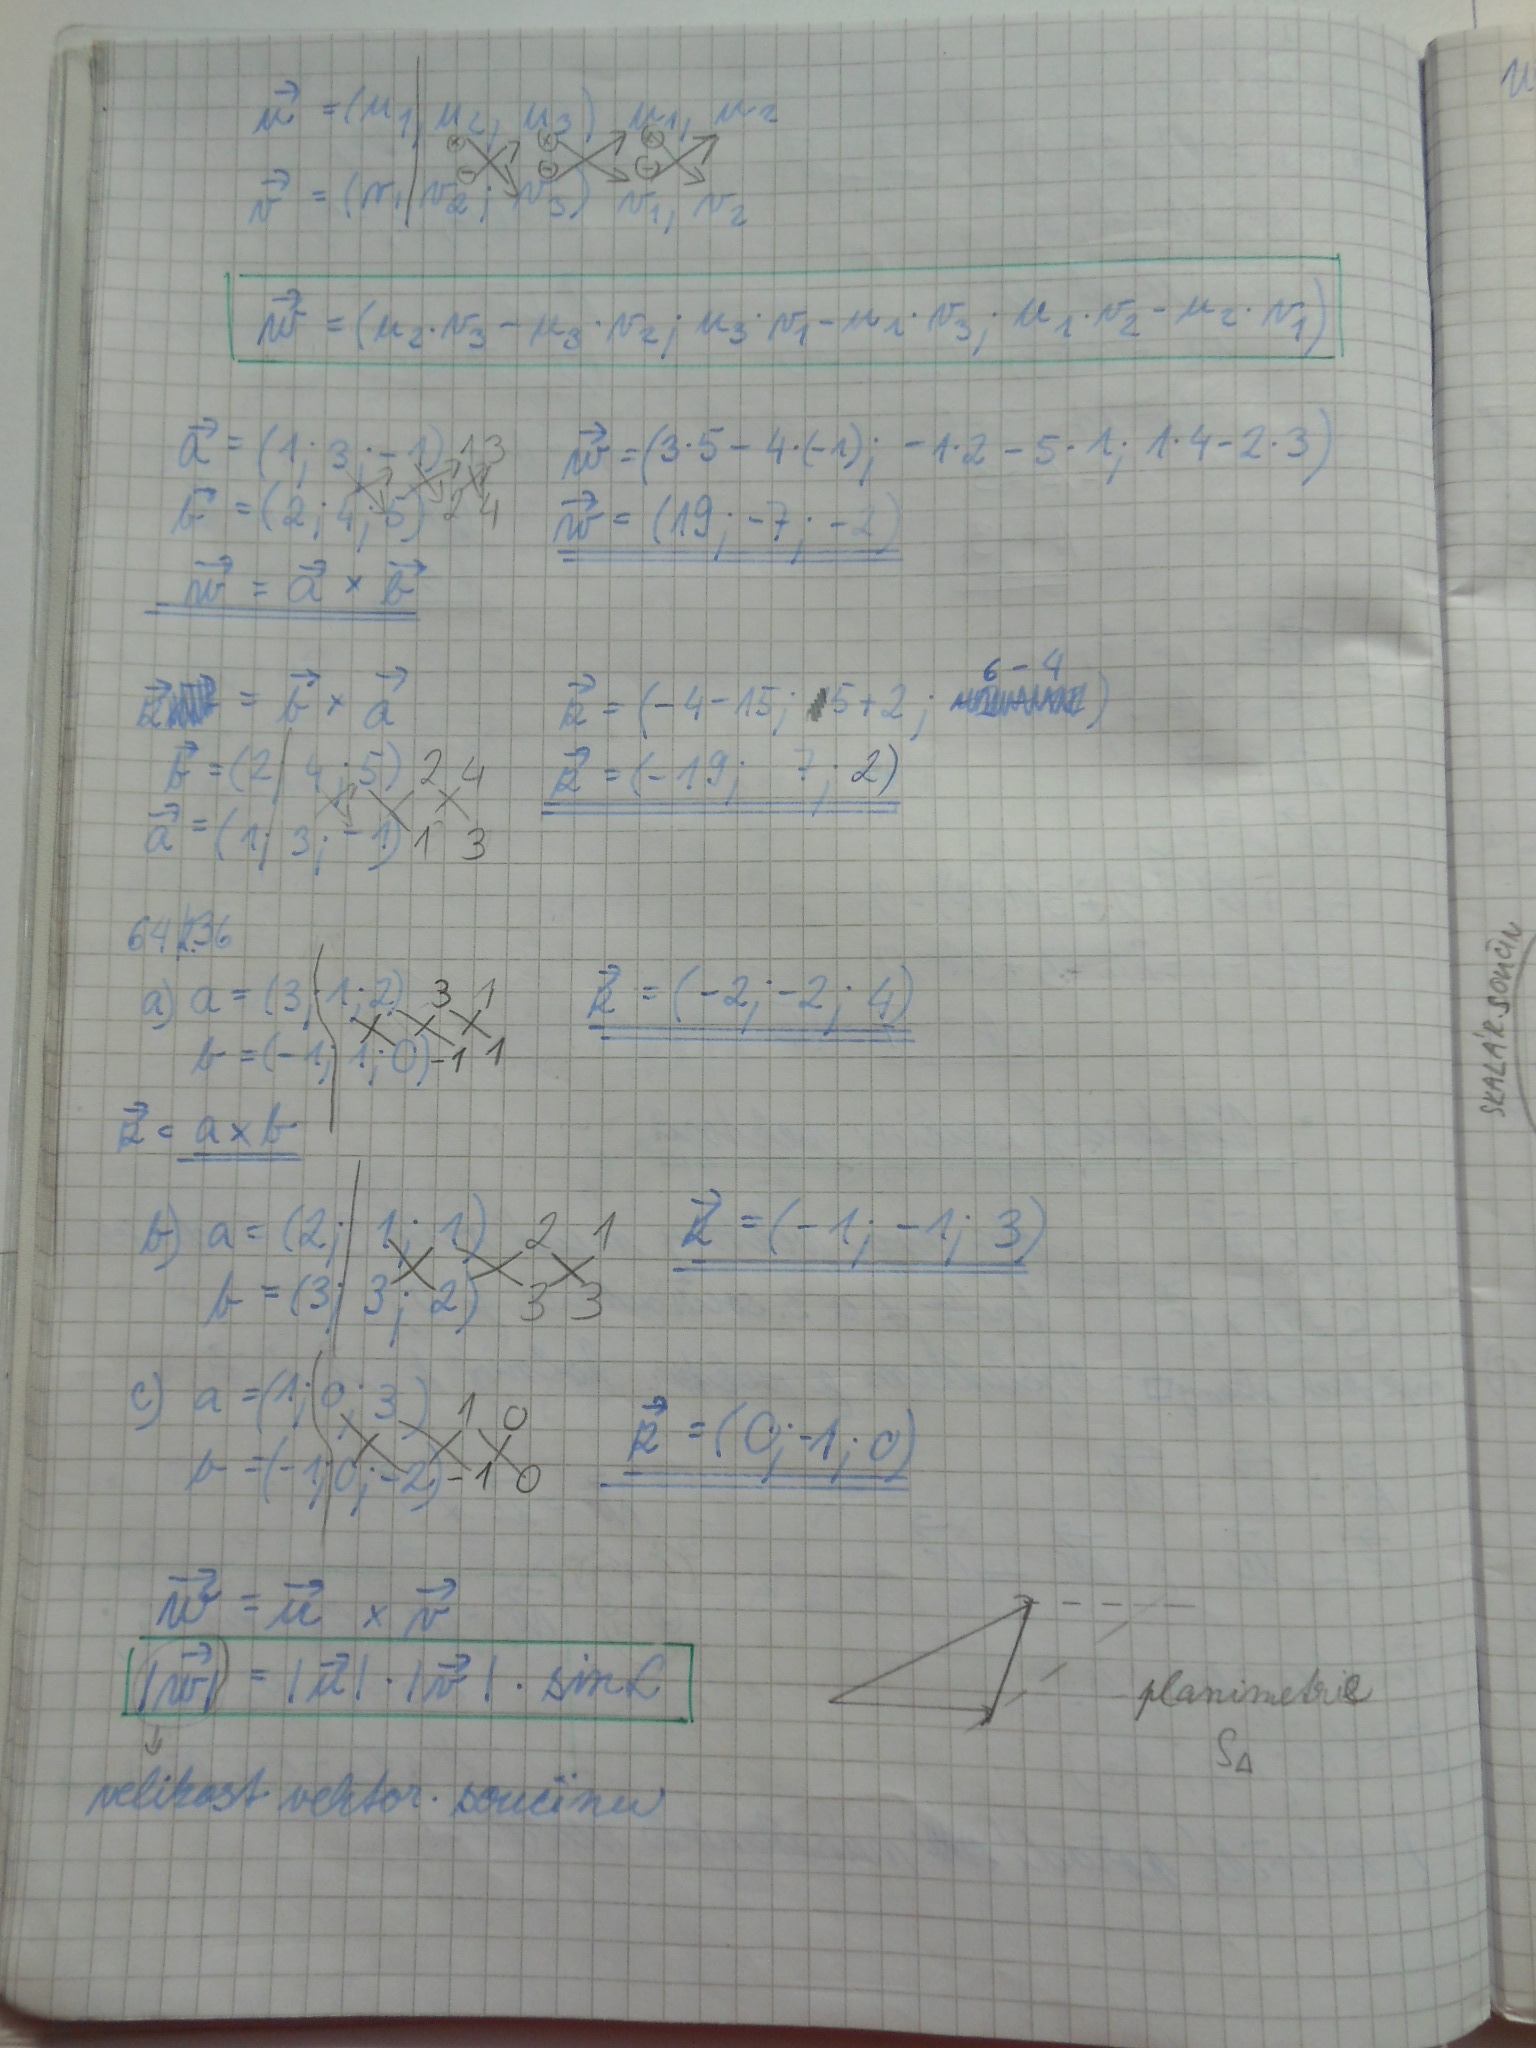 u⃗ = (u1, u2, u3) u1, u2
v⃗ = (v1, v2; v3) v1, v2
w⃗ = (u2·v3 − u3·v2; u3·v1 − u1·v3; u1·v2 − u2·v1)
a⃗ = (1; 3; −1) 1 3
b⃗ = (2; 4; 5) 2 4
w⃗ = a⃗ × b⃗
w⃗ = (3·5 − 4·(−1); −1·2 − 5·1; 1·4 − 2·3)
w⃗ = (19; −7; −2)
k⃗ = b⃗ × a⃗
b⃗ = (2; 4; 5) 2 4
a⃗ = (1; 3; −1) 1 3
6 − 4
k⃗ = (−4 − 15; 5 + 2; )
k⃗ = (−19; 7; 2)
a) a = (3; 1; 2) 3 1
b = (−1; 1; 0) −1 1
k⃗ = (−2; −2; 4)
k⃗ = a × b
b) a = (2; 1; 1) 2 1
b = (3; 3; 2) 3 3
k⃗ = (−1; −1; 3)
c) a = (1; 0; 3) 1 0
b = (−1; 0; −2) −1 0
k⃗ = (0; −1; 0)
w⃗ = u⃗ × v⃗
|w⃗| = |u⃗| · |v⃗| · sin α
velikost vektor. součinu
planimetrie
S△
SKALÁR. SOUČIN